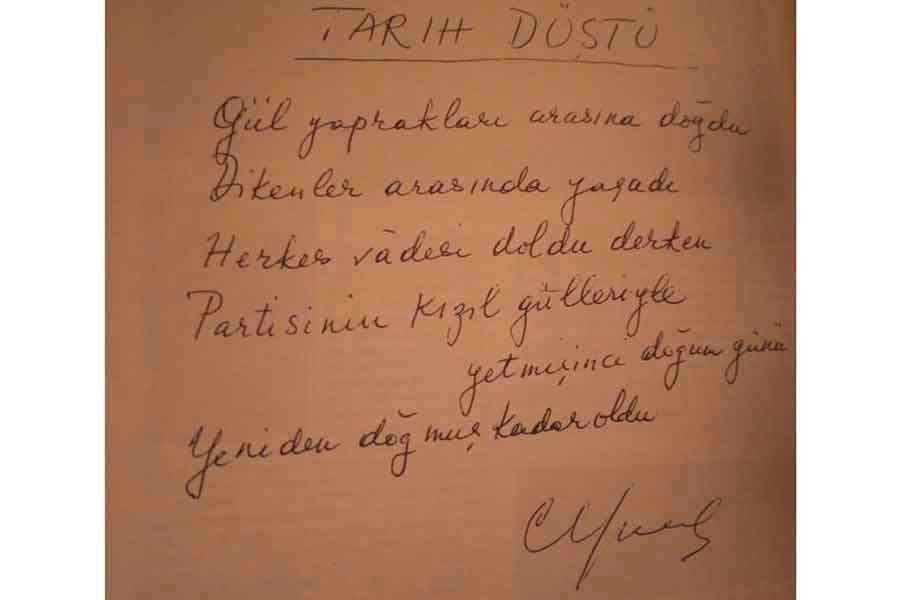 TARIH DÜŞTÜ
Gül yaprakları arasına doğdu
Dikenler arasında yaşadı
Herkes vâdesi doldu derken
Partisinin kızıl gülleriyle
yetmişinci doğum günü
Yeniden doğmuş kadar oldu